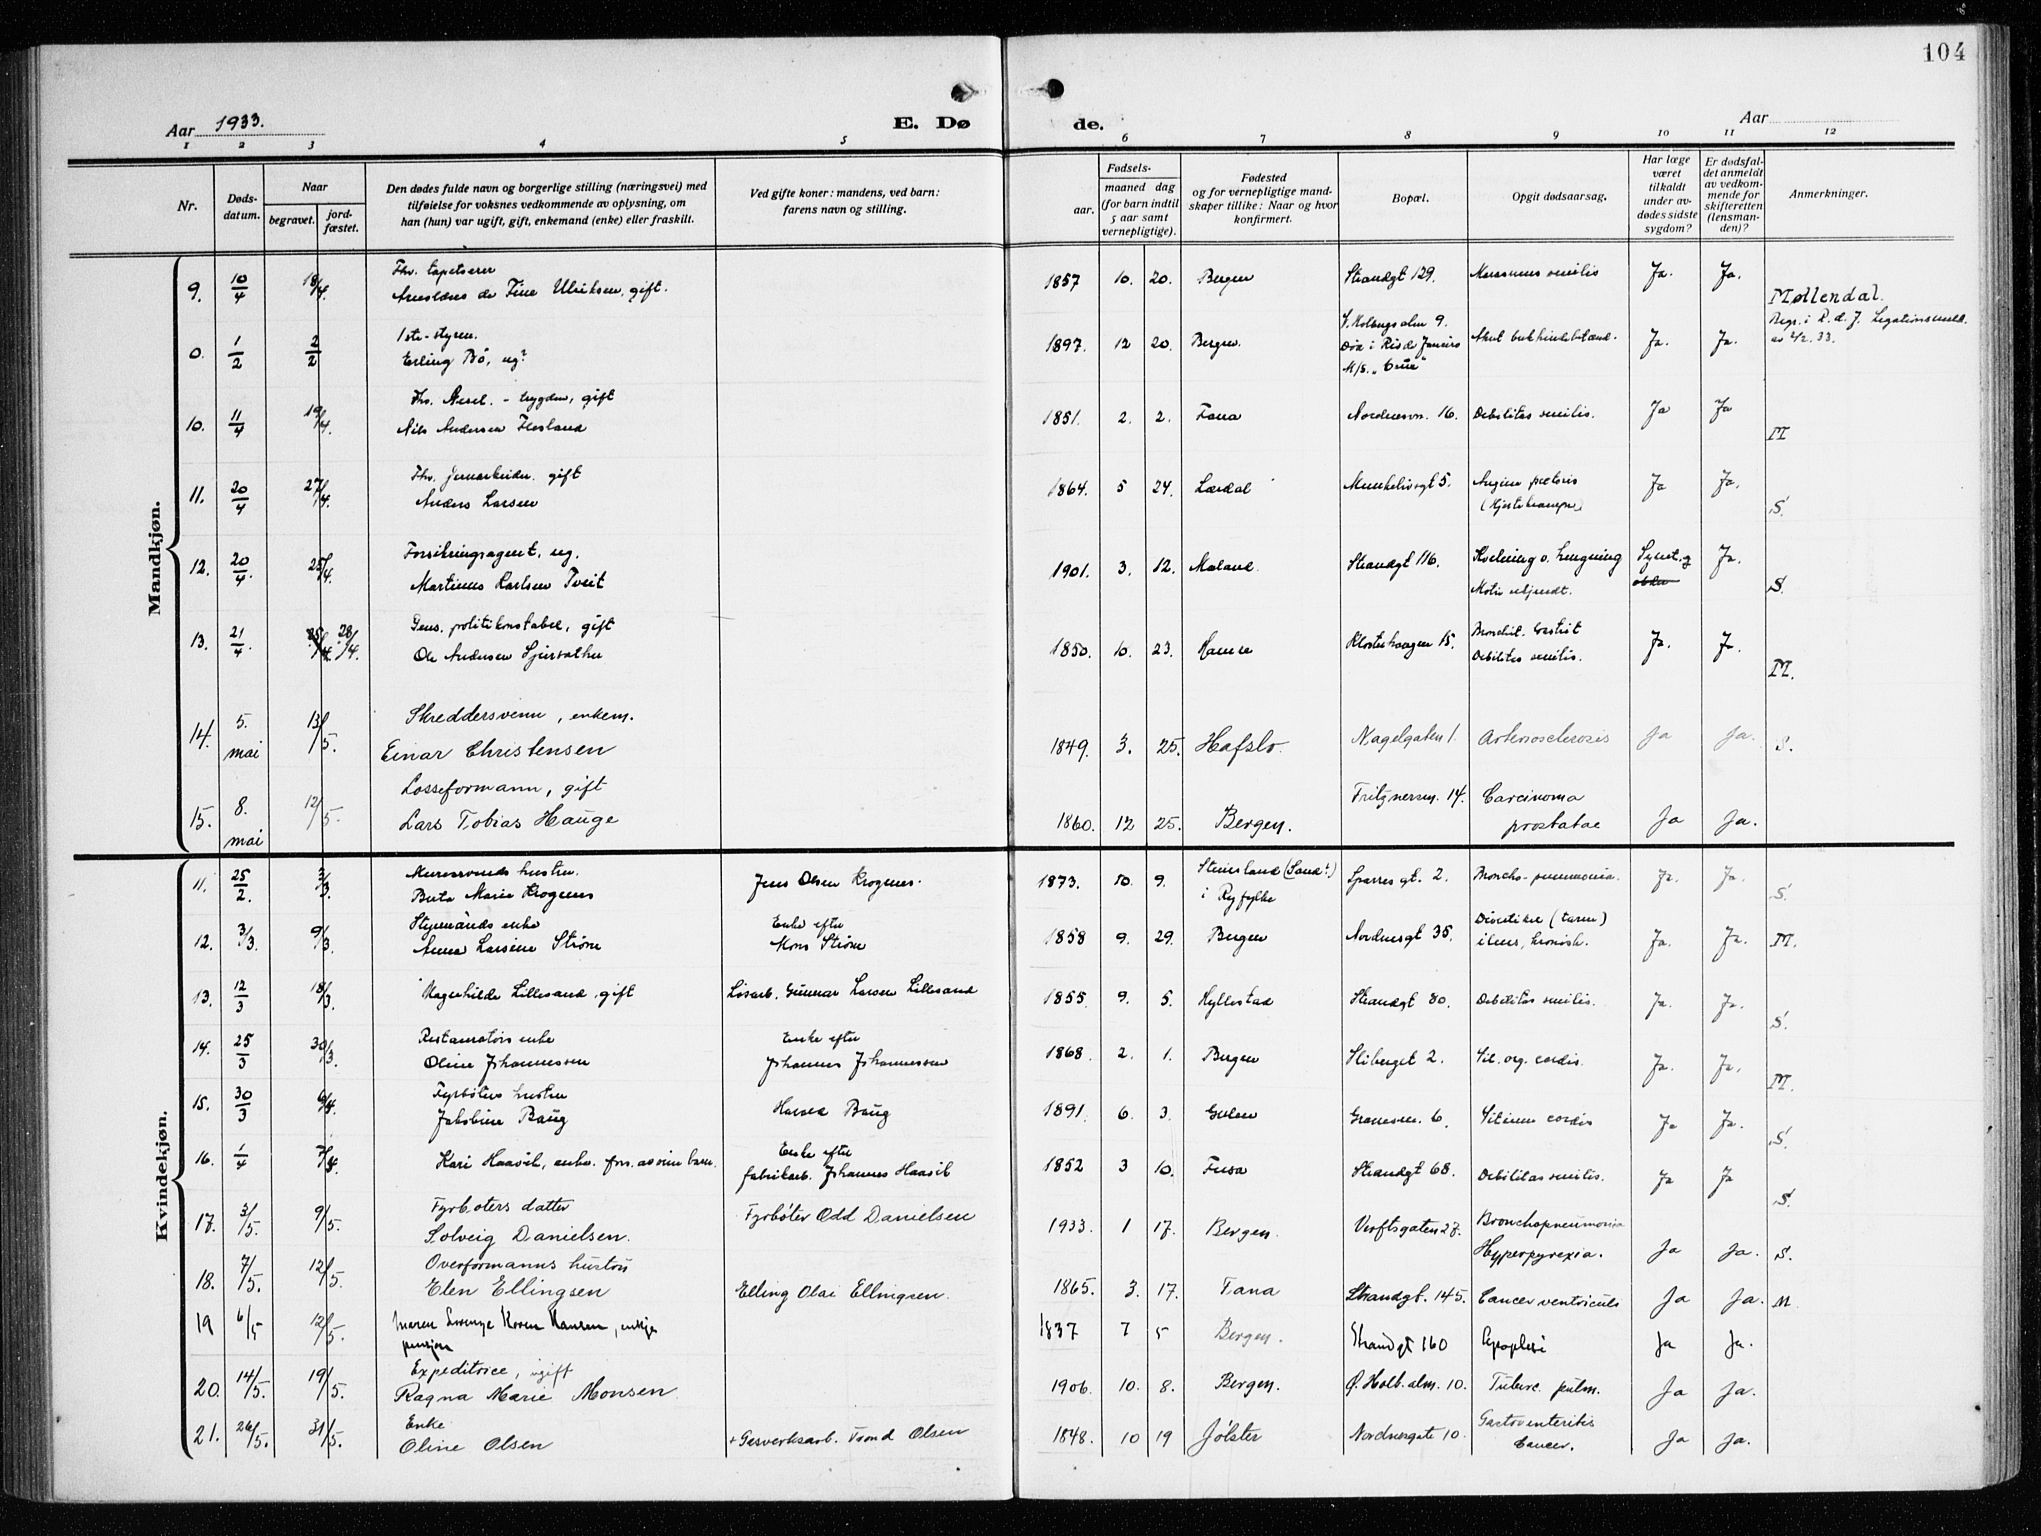 104
Aar 1933.
E. Dø
de.
Aar
1 2 3 4 5 6 7 8 9 10 11 12
Nr.
Døds-
datum.
Naar
begravet.
jord-
fæstet.
Den dødes fulde navn og borgerlige stilling (næringsvei) med
tilføielse for voksnes vedkommende av oplysning, om
han (hun) var ugift, gift, enkemand (enke) eller fraskilt.
Ved gifte koner: mandens, ved barn:
farens navn og stilling.
Fødsels-
aar.
maaned dag
(for barn indtil
5 aar samt
vernepligtige).
Fødested
og for vernepligtige mand-
skaper tillike: Naar og hvor
konfirmert.
Bopæl.
Opgit dødsaarsag.
Har læge
været
tilkaldt
under av-
dødes sidste
sygdom?
Er dødsfal-
det anmeldt
av vedkom-
mende for
skifteretten
(lensman-
den)?
Anmerkninger.
Mandkjøn.
Fhv. tapetserer
9. 10/4 18/4 Ulriksen, gift. 1857 10. 20. Bergen Strandgt 129. Marasmus senilis Ja. Ja.
Møllendal.
1ste-styrm.
0. 1/2 2/2 Erling Bö, ug. 1897. 12 20. Bergen. Ja. Ja.
Fhv. gift
10. 11/4 19/4. Nils Andersen 1851. 2. 2. Fana Nordnesvn. 16. Debilitas senilis. Ja Ja M
Fhv. jernarbeider. gift
11. 20/4 27/4. Anders Larsen 1864. 5 24. Lærdal Munkelivsgt 5. Angina pectoris Ja Ja. S.
Forsikringsagent, ug.
12. 20/4. 25/4. Martinus Karlsen Tveit 1901. 3. 12. Maland. Strandgt 116. Kvelning v. hengning Ja. S.
Motiv ukjendt.
Pens. politikonstabel, gift
13. 21/4. 25/4. 28/4. Ole Andersen 1850. 10. 23. Klosterhaugen 15. Debilitas senilis. Ja. Ja. M.
Skreddersvenn, enkem.
14. 5. mai 13/5. Einar Christensen 1849. 3. 25. Hafslo. Nagelgaten 1. Arteriosclerosis Ja Ja. S.
Losseformann, gift
15. 8. mai 12/5. Lars Tobias Hauge 1860. 12 25. Bergen. 14. Carcinoma
prostatae Ja Ja.
Kvindekjøn.
Murersvends hustru.
11. 25/2. 3/3. Berta Marie Krogenes Jens Olsen Krogenes. 1873. 10. 9. i Ryfylke Sparres gt. 2. Broncho-pneumonia. Ja. Ja. S.
Styrmands enke Enke efter
12. 3/3. 9/3. Anna Larsine Ström Mons Ström 1858 9. 29. Bergen Nordnesgt 35. ileus, kronisk. Ja. Ja. M.
13. 12/3 18/3. Lillesand, gift Løsarb. Gunnar Larsen Lillesand 1855 9. 5. Hyllestad Strandgt 80. Debilitas senilis. Ja. Ja. S.
Restauratörs enke Enke efter
14. 25/3 30/3. Oline Johannessen Johannes Johannessen 1868. 2. 1. Bergen Kliberget 2. Vit. org. cordis. Ja. Ja. M.
Fyrbøters hustru
15. 30/3 6/4. Jakobine Baug Baug 1891. 6. 3. Gulen 6. Vitium cordis Ja Ja. S.
Enke efter
16. 1/4 7/4. Kari Haavik, enke. fors. av sine barn. fabrikarb. Johannes Haavik 1852 3 10. Fusa Strandgt 68. Debilitas senilis. Ja Ja S.
Fyrbøters datter
17. 3/5. 9/5. Solveig Danielsen. Fyrbøter Odd Danielsen 1933. 1 17. Bergen. Verftsgaten 27. Bronchopneumonia
Hyperpyrexia. Ja Ja. S.
Overformanns hustru
18. 7/5. 12/5. Elen Ellingsen Elling Olai Ellingsen. 1865. 3. 17. Fana Strandgt. 145. Cancer ventriculi Ja Ja. M.
19 6/5 12/5. Maren Hansen, enkje 1837 7 5 Bergen. Strandgt 160 Apoplexi Ja Ja.
Expeditrice, ugift
20. 14/5. 19/5. Ragna Marie Monsen 1906. 10. 8. Bergen. Ø. Holb. alm. 10. Tuberc. pulm. Ja Ja.
Enke
21. 26/5. 31/5. Oline Olsen + Gasverksarb. Trond Olsen 1848. 10 19 Jølster Nordnesgate 10. Gastroenteritis
Cancer. Ja Ja.